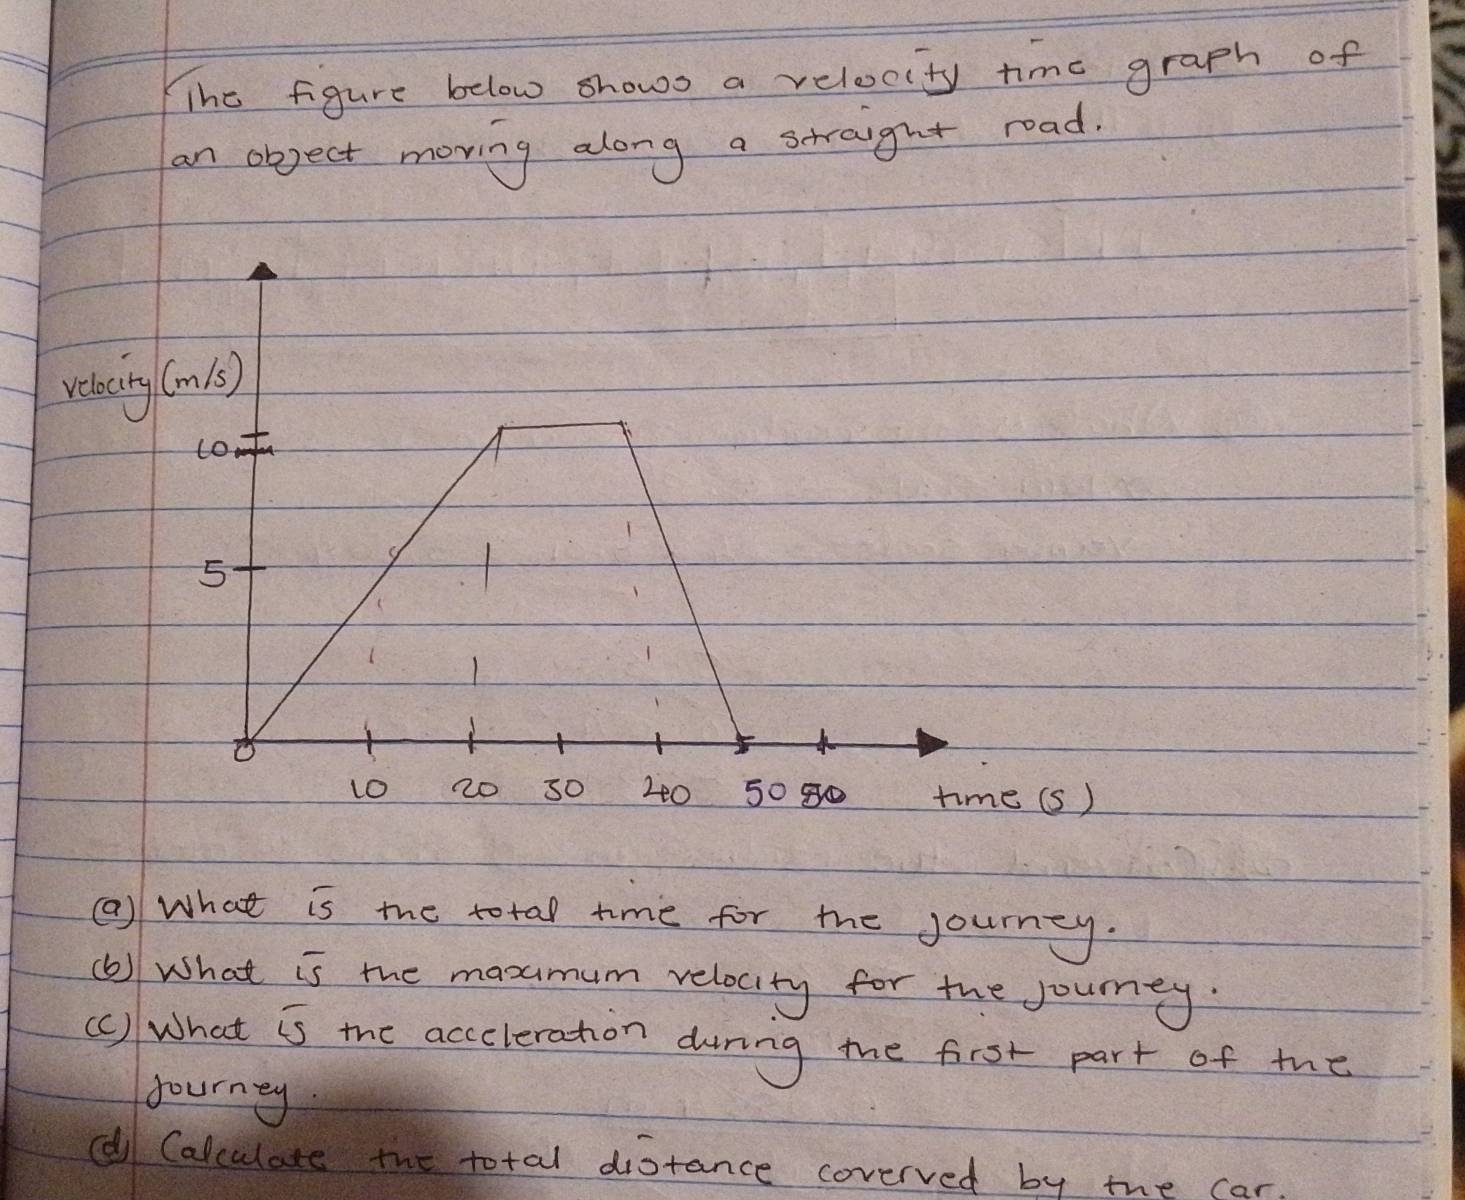 The figure below shows a velocity time graph of
an object moving along a straight road.
velocity (m/s)
10
5
0
10 20 30 40 50 time (s)
(a) What is the total time for the journey.
(b) What is the maximum velocity for the journey.
(c) What is the acceleration during the first part of the
journey.
(d) Calculate the total distance coverved by the car.